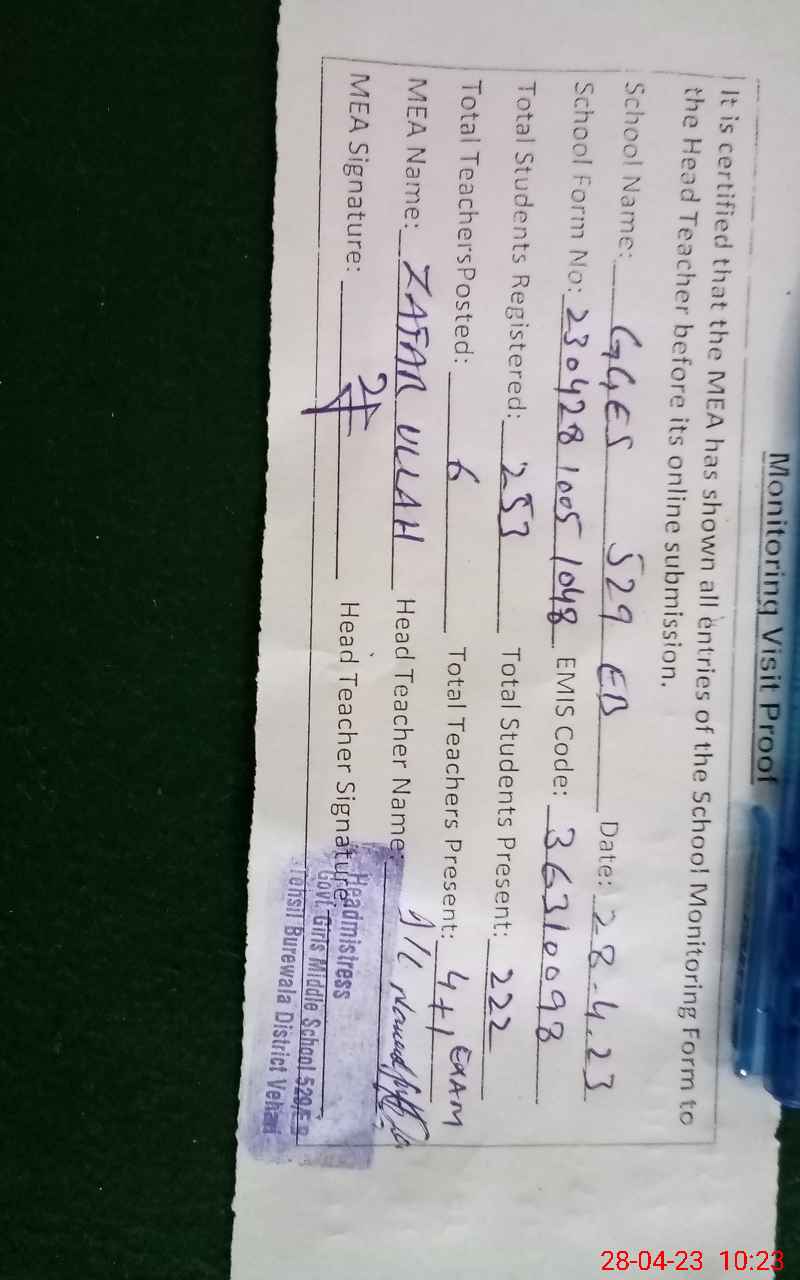 Monitoring Visit Proof
It is certified that the MEA has shown all entries of the School Monitoring Form to
the Head Teacher before its online submission.
School Name: GGES 529 EB Date: 28-4-23
School Form No: 230428 1005 1048 EMIS Code: 36310098
Total Students Registered: 253 Total Students Present: 222
Total TeachersPosted: 6 Total Teachers Present: 4+1 EXAM
MEA Name: ZAFAR ULLAH Head Teacher Name:
MEA Signature: Head Teacher Signature
Headmistress
Govt Girls Middle School 529/E.B
Tehsil Burewala District Vehari
28-04-23 10:23